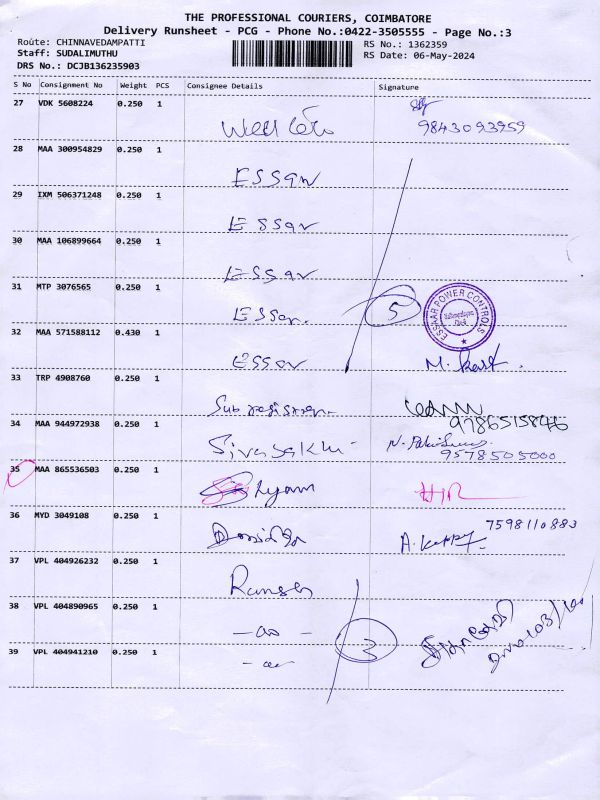 THE PROFESSIONAL COURIERS, COIMBATORE
Delivery Runsheet - PCG - Phone No.:0422-3505555 - Page No.:3
Route: CHINNAVEDAMPATTI
RS No.: 1362359
Staff: SUDALIMUTHU
RS Date: 06-May-2024
DRS No.: DCJB136235903
S No Consignment No Weight PCS Consignee Details Signature
27 VDK 5608224 0.250 1
9843093959
28 MAA 300954829 0.250 1
ESSar
29 IXM 506371248 0.250 1
ESSar
30 MAA 106899664 0.250 1
ESSar
31 MTP 3076565 0.250 1
ESSar.
5
ESSAAR POWER CONTROLS
32 MAA 571588112 0.430 1
ESSar
33 TRP 4908760 0.250 1
Sub registrar
9786515846
34 MAA 944972938 0.250 1
Sivasakthi
9578505000
35 MAA 865536503 0.250 1
Shyam
36 MYD 3049108 0.250 1
7598110883
37 VPL 404926232 0.250 1
Ramesh
38 VPL 404890965 0.250 1
3
39 VPL 404941210 0.250 1